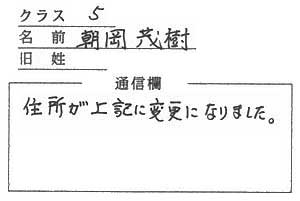 クラス 5
名前 朝岡茂樹
旧姓
通信欄
住所が上記に変更になりました。